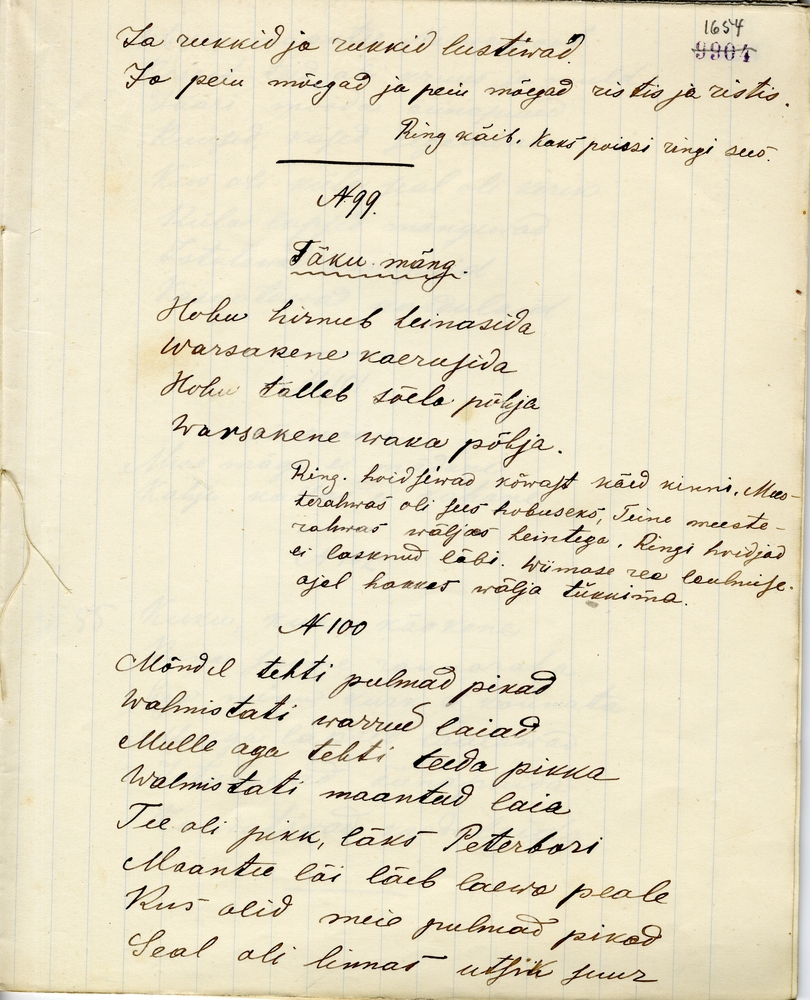 1654
9904
Ja rukkid ja rukkid lustiwad.
Ja peiu mõegad ja peiu mõegad ristis ja ristis.
Ring käib. Kaks poissi ringi sees.
N 99.
Täku mäng.
Hobu hirnub heinasida
Warsakene kaerusida
Hobu talleb sõela põhja
Warsakene waka põhja.
Ring. hoidsiwad kõwast käed kinni. Mees-
terahwas oli sees hobuseks, Teine meeste-
rahwas wäljas heintega. Ringi hoidjad
ei lasknud läbi. Wiimase rea laulmise
ajal hakkas wälja tükkima.
N 100
Mõndel tehti pulmad pikad
Walmistati warrud laiad
Mulle aga tehti teeda pikka
Walmistati maanteed laia
Tee oli pikk, läks Peterbori
Maantee läi läeb laewa peale
Kus olid meie pulmad pikad
Seal oli linnas utsik suur